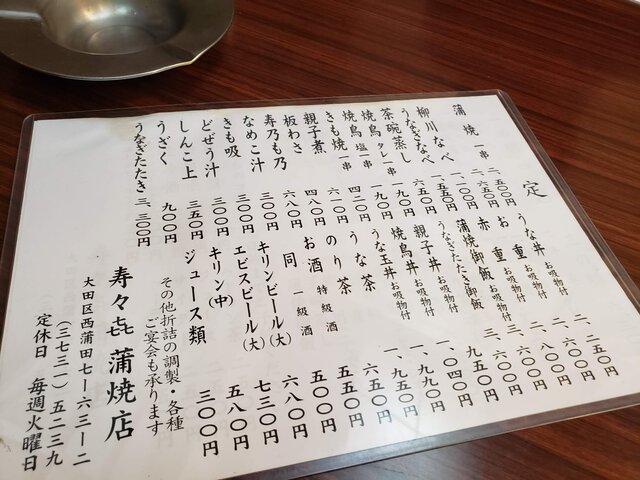 定
蒲焼 一串 二、五〇〇円
二、六五〇円
柳川なべ 一、一〇〇円
うなぎなべ 一、五五〇円
茶碗蒸し 六五〇円
焼鳥 タレ 一串 一九〇円
焼鳥 塩 一串 一九〇円
きも焼 一串 四二〇円
親子煮 六一〇円
板わさ 四八〇円
寿乃も乃 六八〇円
なめこ汁 三〇〇円
きも吸 三〇〇円
どぜう汁 三〇〇円
しんこ上 三五〇円
うざく 九〇〇円
うなぎたたき 三、三〇〇円
うな丼 お吸物付 二、二五〇円
お重 お吸物付 二、六〇〇円
赤重 お吸物付
蒲焼御飯 お吸物付 三、六〇〇円
うなぎたたき御飯 三、六〇〇円
親子丼 お吸物付 九五〇円
焼鳥丼 お吸物付 一、〇四〇円
うな玉丼 お吸物付 一、九九〇円
うな茶 一、九五〇円
のり茶 五五〇円
お酒 特級酒 五五〇円
同 一級酒 五〇〇円
キリンビール(大) 六八〇円
エビスビール(大) 七三〇円
キリン(中) 五八〇円
ジュース類 三〇〇円
その他折詰の調製・各種
ご宴会も承ります
寿々㐂 蒲焼店
大田区西蒲田七ー六三ー二
(三七三一)五二三九
定休日 毎週火曜日